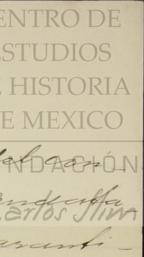 ENTRO DE
ESTUDIOS
E HISTORIA
E MEXICO
del con
NDACIÓN
Carlos Slim